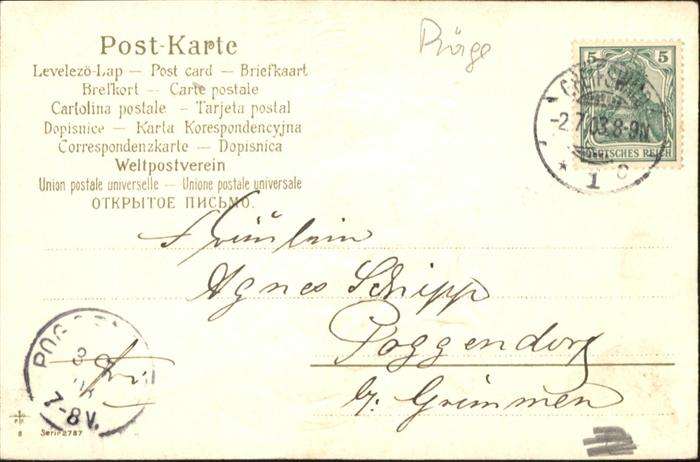 Post-Karte
Levelező-Lap — Post card — Briefkaart
Brefkort — Carte postale
Cartolina postale — Tarjeta postal
Dopisnice — Karta Korespondencyjna
Correspondenzkarte — Dopisnica
Weltpostverein
Union postale universelle — Unione postale universale
ОТКРЫТОЕ ПИСЬМО.
5 5
-2.7.03.8-9N
DEUTSCHES REICH
* 1 c
Fräulein
Agnes Schipp
Poggendorf
bz. Grimmen
7-8V.
8 Serie 2787